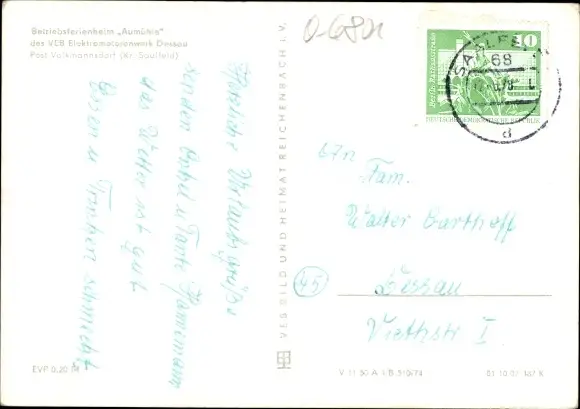 Betriebsferienheim „Aumühle"
des VEB Elektromotorenwerk Dessau
Post Volkmannsdorf (Kr. Saalfeld)
Herzliche Urlaubsgrüße
senden Onkel u Tante
das Wetter ist gut
Essen u Trinken schmeckt
EVP 0,20 M
VEB BILD UND HEIMAT REICHENBACH i. V.
10
Berlin, Rathausstrasse
DEUTSCHE DEMOKRATISCHE REPUBLIK
SAALFELD
68
d
Fam.
Walter Barthoff
45
Dessau
Viethstr I
V 11 50 A 1/B 510/74
01 10 07 167 K